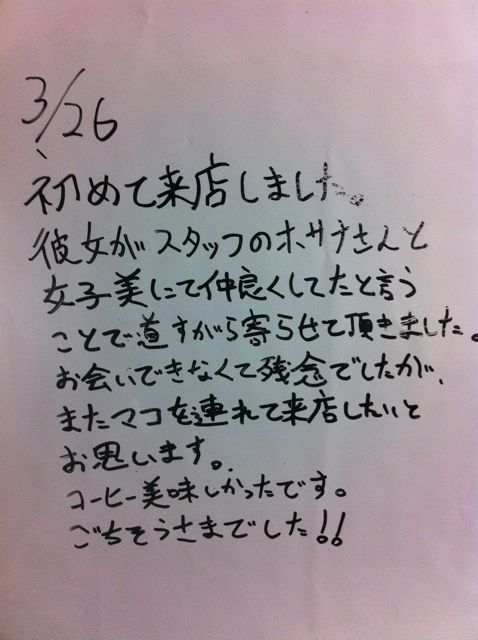 3/26
初めて来店しました。
彼女がスタッフのホサナさんと
女子美にて仲良くしてたと言う
ことで道すがら寄らせて頂きました。
お会いできなくて残念でしたが、
またマコを連れて来店したいと
お思います。
コーヒー美味しかったです。
ごちそうさまでした!!